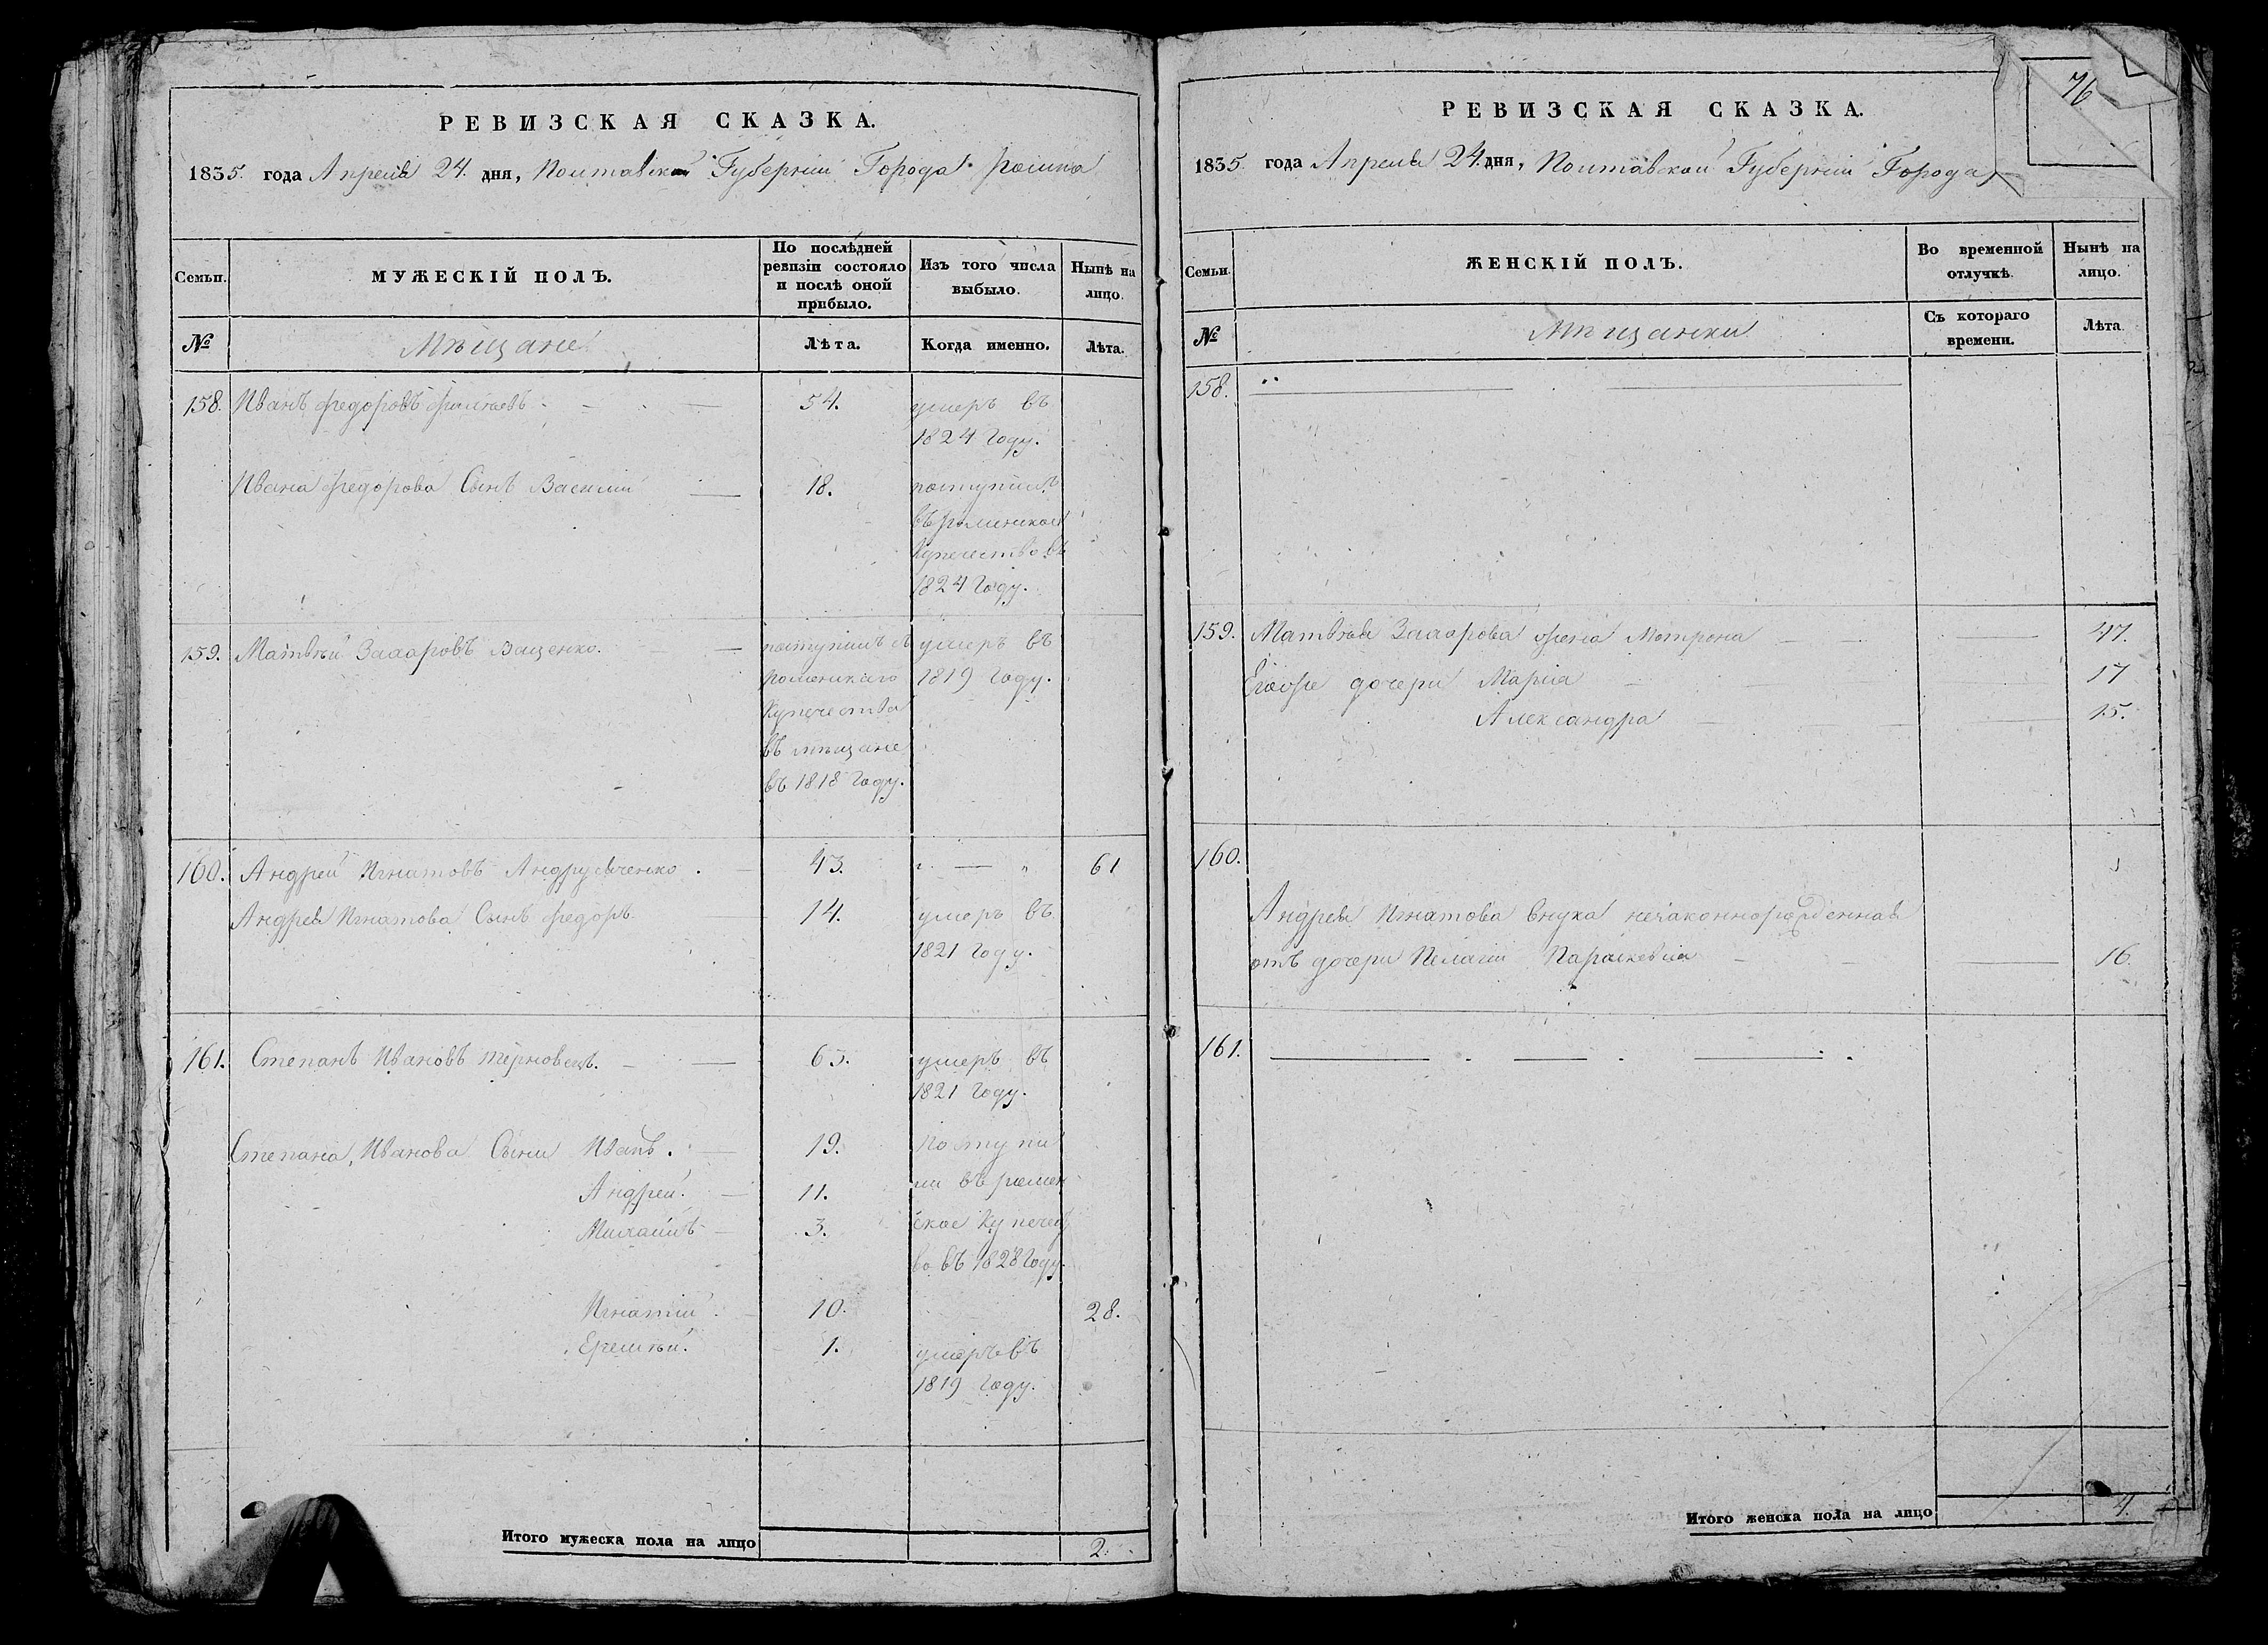 РЕВИЗСКАЯ СКАЗКА.
1835. года Апреля 24. дня, Полтавской Губернии Города Ромна
Семьи.
МУЖЕСКІЙ ПОЛЪ.
По послѣдней ревизіи состояло и послѣ оной прибыло.
Изъ того числа выбыло.
Нынѣ на лицо.
№
Мѣщане
Лѣта.
Когда именно.
Лѣта.
158. Иванъ Федоровъ 54. умеръ въ
1824 Году.
Ивана Федорова Сынъ Василий 18. поступилъ
въ роменское
Купечество въ
1824 Году.
159. Матвѣй Захаровъ Ващенко. поступилъ изъ умеръ въ
роменскаго 1819 Году.
Купечества
въ мѣщане
въ 1818 Году.
160. Андрей Игнатовъ Андрущенко. 43. „ — „ 61
Андрея Игнатова Сынъ Федоръ 14. умеръ въ
1821 Году.
161. Степанъ Ивановъ Терновецъ. 65. умеръ въ
1821 Году.
Степана Иванова Сыны Иванъ. 19. Поступи
Андрей. 11. ли въ ромен
Михаилъ 3. ское Купечест
во въ 1828 Году.
Игнатій. 10. 28.
Еремѣй. 1. умеръ въ
1819 Году.
Итого мужеска пола на лицо 2.
76
РЕВИЗСКАЯ СКАЗКА.
1835. года Апреля 24. дня, Полтавской Губернии Города
Семьи.
ЖЕНСКІЙ ПОЛЪ.
Во временной отлучкѣ.
Нынѣ на лицо.
№
Мѣщанки
Съ котораго времени.
Лѣта.
158.
159. Матвѣя Захарова жена Мотрона 47.
Егоже дочери Марія 17
Александра 15.
160.
Андрея Игнатова внука незаконнорожденная
отъ дочери Пелагии Параскевія 16.
161.
Итого женска пола на лицо 4.